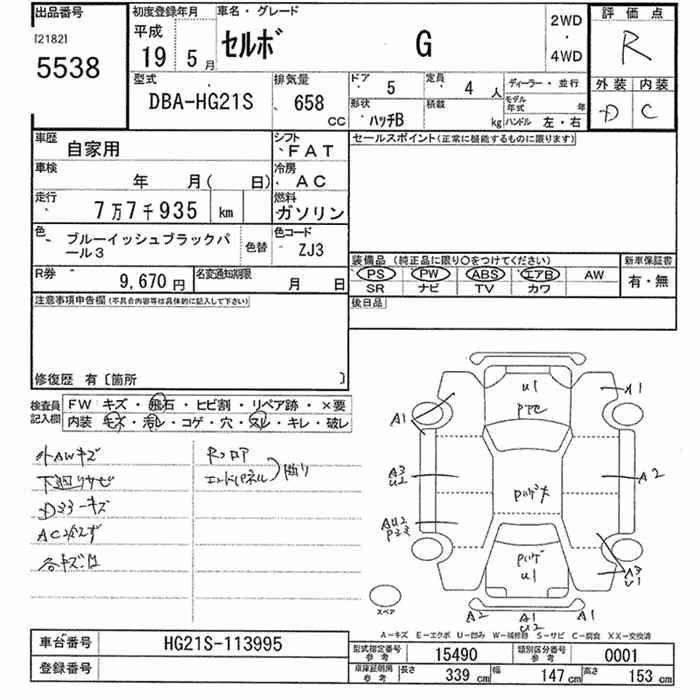 出品番号
[2182]
5538
初度登録年月
平成
19 5月
車名・グレード
セルボ G
2WD
・
4WD
評価点
R
外装 内装
D C
型式
DBA-HG21S
排気量
658
CC
ドア 5
定員 4 人
形状 ハッチB
積載 kg
ディーラー・並行
モデル年式 年
ハンドル 左・右
車歴 自家用
シフト
FAT
車検 年 月( 日)
冷房
AC
走行
7万7千935 km
燃料
ガソリン
色
ブルーイッシュブラックパ
ール3
色替
色コード
ZJ3
R券
9,670円
名変通知期限
月 日
セールスポイント(正常に機能するものに限ります)
装備品(純正品に限り〇をつけてください)
PS PW ABS エアB AW
SR ナビ TV カワ
新車保証書
有・無
後日品
注意事項申告欄(不具合内容等は具体的に記入して下さい)
修復歴 有〔箇所 〕
検査員
記入欄
FW キズ・飛石・ヒビ割・リペア跡・×要
内装 キズ・汚レ・コゲ・穴・スレ・キレ・破レ
外AWキズ
下廻りサビ
AC冷えず
Rフロア
エンドパネル
U1
A1
A1
A3
U2
A2
AU2
U1
A3
U1
A2
A1
U2
A1
スペア
A-キズ E-エクボ U-凹み W-補修跡 S-サビ C-腐食 XX-交換済
車台番号 HG21S-113995
登録番号
型式指定番号
参考
15490
類別区分番号
参考
0001
車庫証明用
参考
長さ 339 cm
幅 147 cm
高さ 153 cm